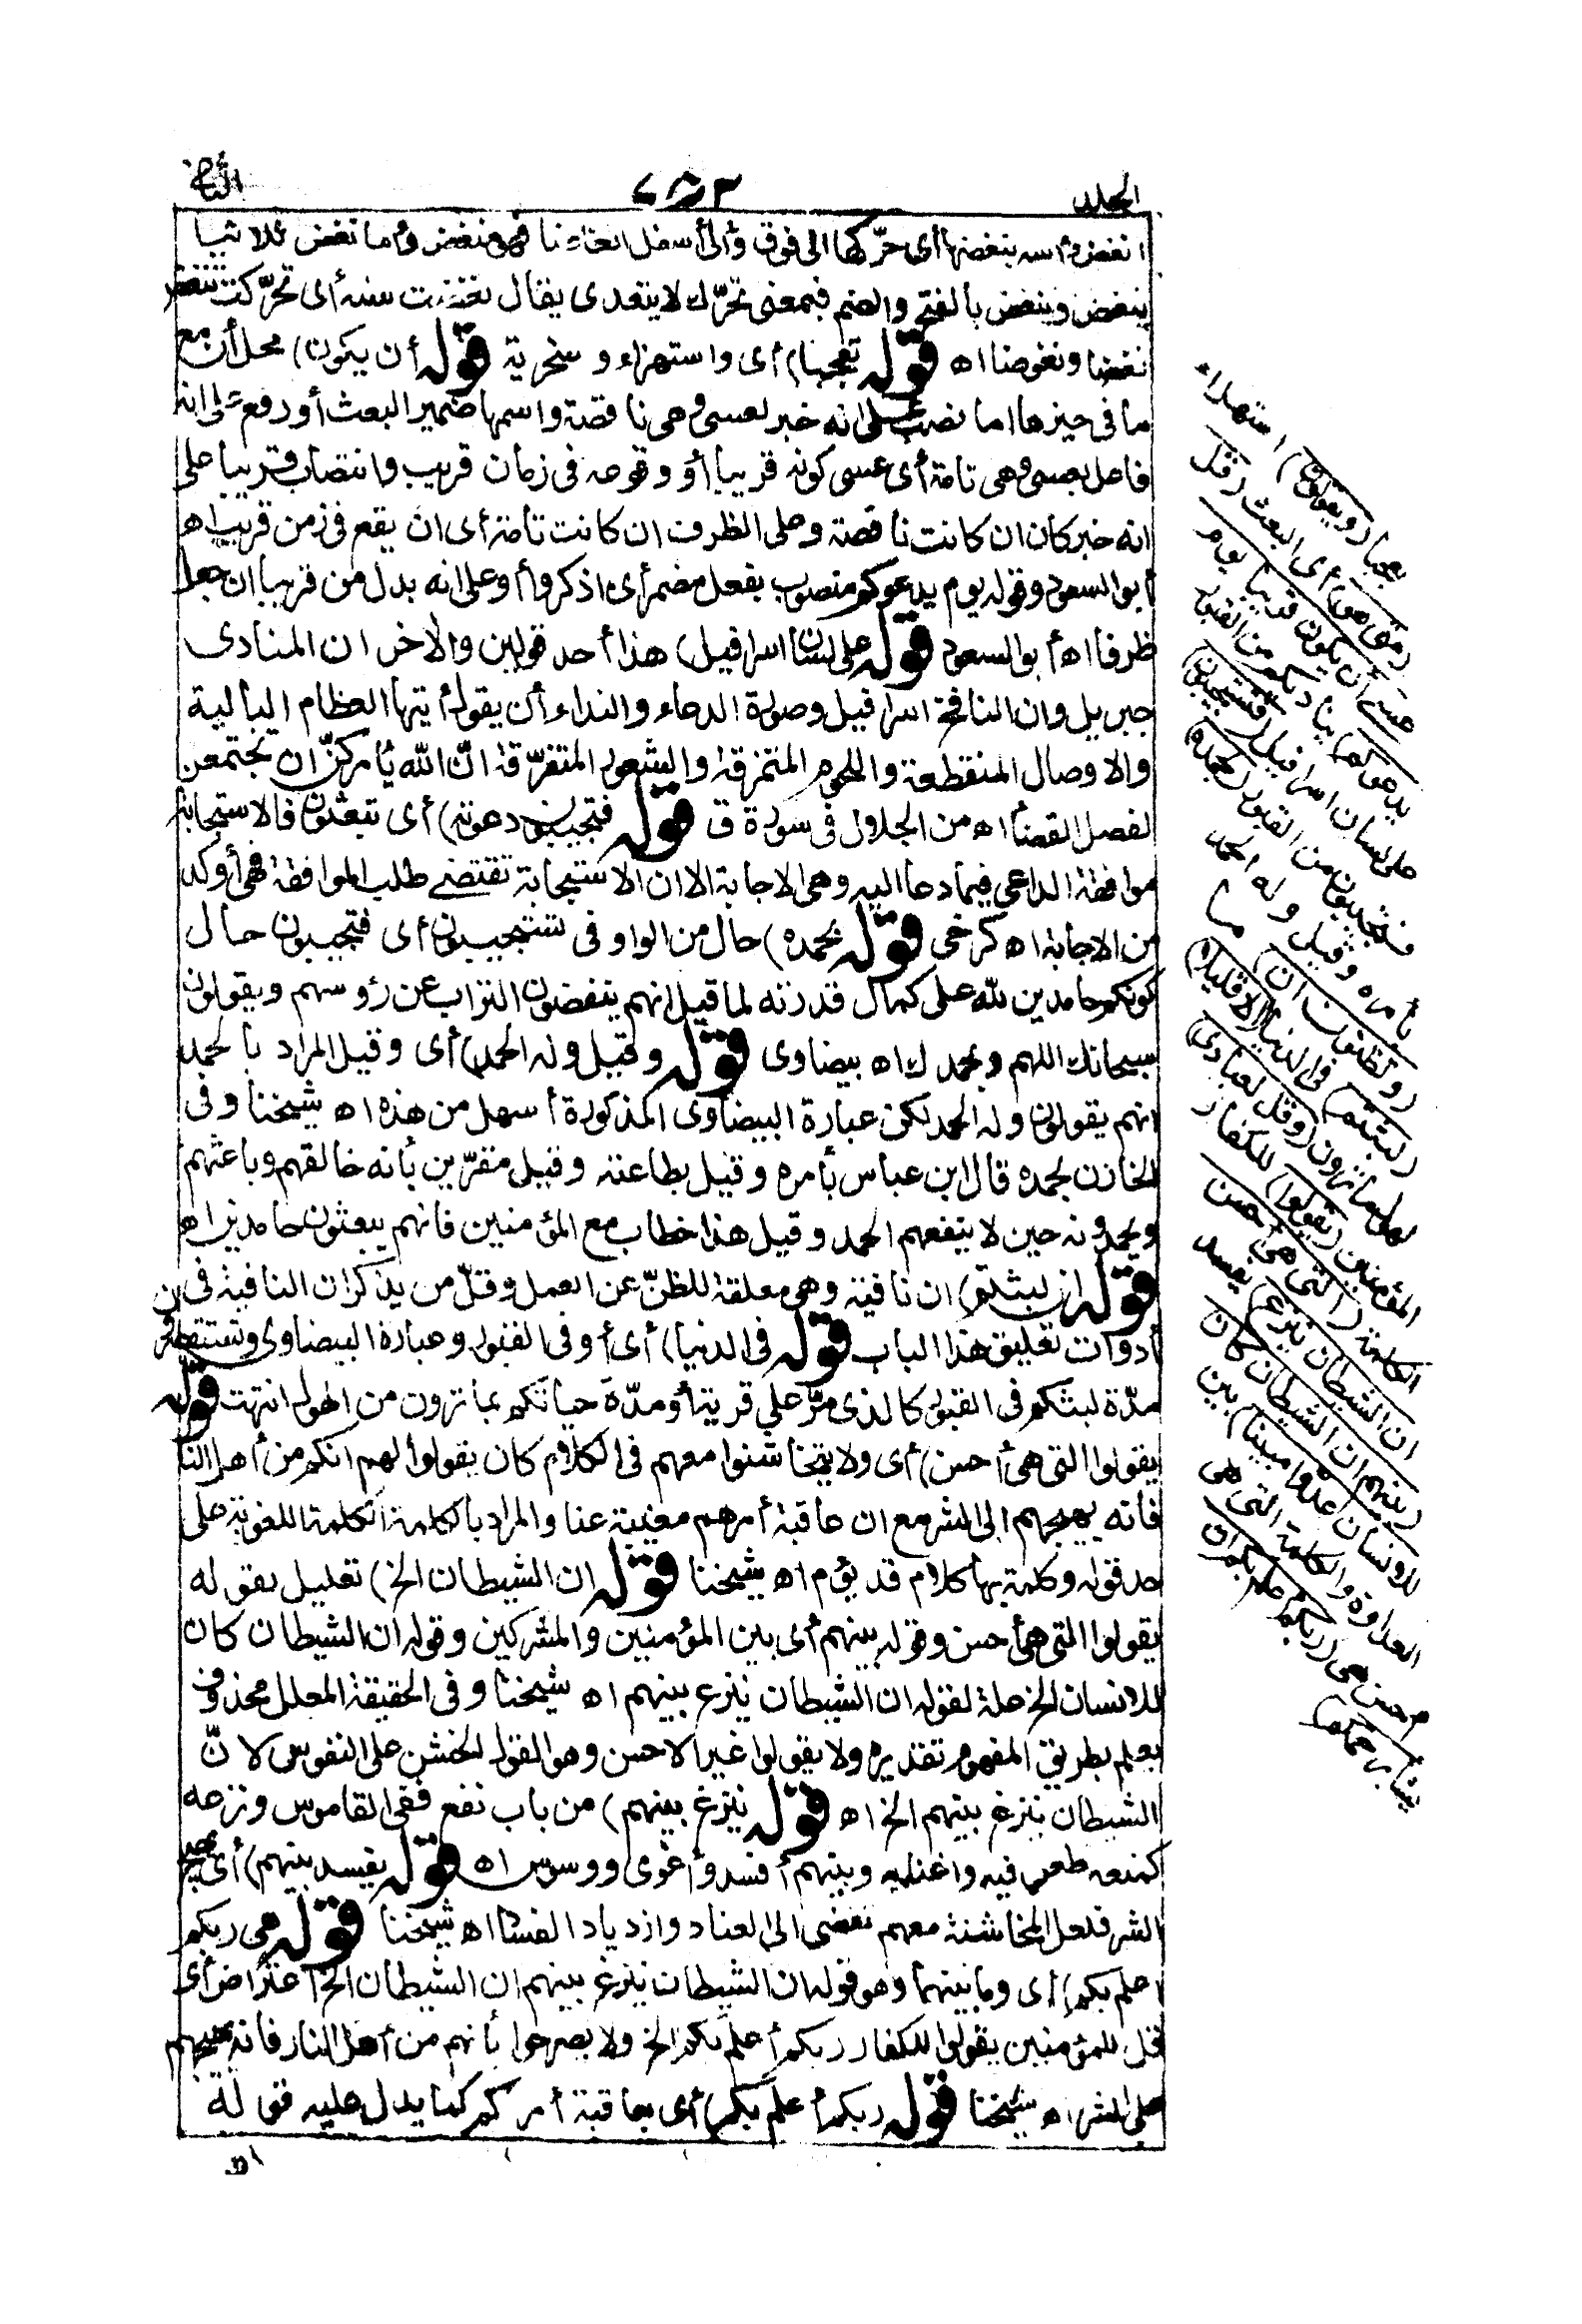 الجلد
٤٥٢
الثانى
انغض رأسه ينغضها أى حرّكها الى فوق والى أسفل انغاضا فهو منغض وأما نغض ثلاثيا
ينغض وينغض بالفتح والضم فبمعنى تحرّك لا يتعدى يقال نغضت سنه أى تحرّكت تنغض
نغضا ونغوضا اه قوله تعجبا) أى واستهزاء و سخرية قوله أن يكون) محل أن مع
ما فى حيزها اما نصب على انه خبر لعسى وهى ناقصة واسمها ضمير البعث أو رفع على انه
فاعل بعسى وهى تامة أى عسى كونه قريبا أو وقوعه فى زمان قريب وانتصاب قريبا على
انه خبر كان ان كانت ناقصة وعلى الظرف ان كانت تامة أى ان يقع فى زمن قريب اه
أبو السعود وقوله يوم يدعوكم منصوب بفعل مضمر أى اذكروا أو على انه بدل من قريبا ان جعل
ظرفا اه أبو السعود قوله على لسان اسرافيل) هذا أحد قولين والاخر ان المنادى
جبريل وان النافخ اسرافيل وصورة الدعاء والنداء أن يقول أيتها العظام البالية
والاوصال المنقطعة واللحوم المتمزقة والشعور المتفرّقة انّ الله يأمركنّ ان تجتمعن
لفصل القضا اه من الجلال فى سورة ق قوله فتجيبون دعوته) أى تبعثون فالاستجابة
موافقة الداعى فيما دعا اليه وهى الاجابة الا ان الاستجابة تقتضى طلب الموافقة فهى أوكد
من الاجابة اه كرخى قوله بحمده) حال من الواو فى تستجيبون أى فتجيبون حال
كونكم حامدين لله على كمال قدرته لما قيل انهم ينفضون التراب عن رؤسهم ويقولون
سبحانك اللهم وبحمدك اه بيضاوى قوله وقيل وله الحمد) أى وقيل المراد بالحمد
انهم يقولون وله الحمد لكن عبارة البيضاوى المذكورة أسهل من هذه اه شيخنا وفى
الخازن بحمده قال ابن عباس بأمره وقيل بطاعته وقيل مقرّين بأنه خالقهم وباعثهم
ويحمدونه حين لا ينفعهم الحمد وقيل هذا خطاب مع المؤمنين فانهم يبعثون حامدين اه
قوله ان لبثتم) ان نافية وهى معلقة للظنّ عن العمل وقلّ من يذكر ان النافية فى
أدوات تعليق هذا الباب قوله فى الدنيا) أى أو فى القبور وعبارة البيضاوى وتستقصرون
مدّة لبثكم فى القبور كالذى مرّ على قرية أو مدّة حياتكم بما ترون من الهول انتهت قوله
يقولوا التى هى أحسن) أى ولا يتخاشنوا معهم فى الكلام كان يقولوا لهم انكم من أهل النار
فانه يهيجهم الى الشر مع ان عاقبة أمرهم مغيبة عنا والمراد بالكلمة الكلمة اللغوية على
حد قوله وكلمة بها كلام قد يؤم اه شيخنا قوله ان الشيطان الخ) تعليل بقوله
يقولوا التى هى أحسن وقوله بينهم أى بين المؤمنين والمشركين وقوله ان الشيطان كان
للانسان الخ علة لقوله ان الشيطان ينزغ بينهم اه شيخنا وفى الحقيقة المعلل محذوف
يعلم بطريق المفهوم تقديره ولا يقولوا غير الاحسن وهو القول الخشن على النفوس لانّ
الشيطان ينزغ بينهم الخ اه قوله ينزغ بينهم) من باب نفع ففى القاموس ونزغه
كمنعه طعن فيه واغتابه وبينهم أفسد وأغوى ووسوس اه قوله يفسد بينهم) أى يهيج
الشر فلعل المخاشنة معهم تفضى الى العناد وازدياد الفساد اه شيخنا قوله هى ربكم
اعلم بكم) أى وما بينهما وهو قوله ان الشيطان ينزغ بينهم ان الشيطان الخ اعتراض أى
قل للمؤمنين يقولوا للكفار ربكم أعلم بكم الخ ولا يصرحوا بأنهم من أهل النار فانه يهيجهم
على الشر اه شيخنا قوله ربكم أعلم بكم) أى بعاقبة أمركم كما يدل عليه قوله
تعجبا (ويقولون) استهزاء
(متى هو) أى البعث (قل
عسى أن يكون قريبا يوم
يدعوكم) يناديكم من القبور
على لسان اسرافيل (فتستجيبون)
فتجيبون من القبور (بحمده)
بأمره وقيل وله الحمد
(وتظنون ان) ما
(لبثتم) فى الدنيا (الا قليلا)
لهول ما ترون (وقل لعبادى)
المؤمنين (يقولوا) للكفار
الكلمة (التى هى أحسن
ان الشيطان ينزغ) يفسد
(بينهم ان الشيطان كان
للانسان عدوّا مبينا) بين
العداوة والكلمة التى هى
أحسن هى (ربكم أعلم بكم ان
يشأ يرحمكم)